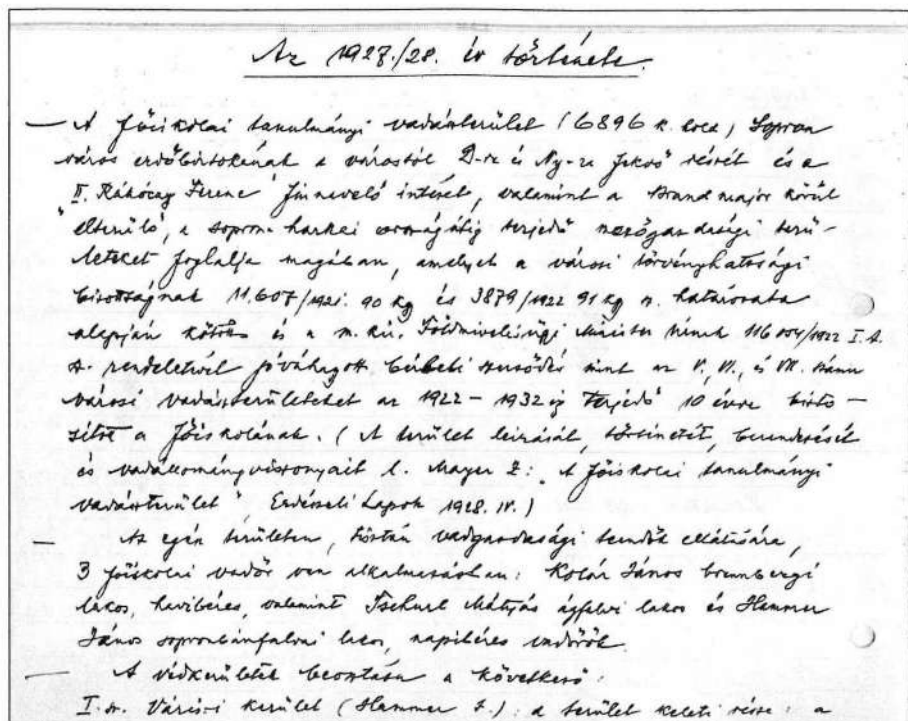 Az 1927./28. év története.
— A főiskolai tanulmányi vadászterület (6896 k. hold) Sopron
város erdőbirtokának a várostól D-re és Ny-ra fekvő részét és a
II. Rákóczy Ferenc finevelő intézet, valamint a Brand major körül
elterülő, a sopron-harkai országútig terjedő mezőgazdasági terü-
leteket foglalja magában, amelyet a városi törvényhatósági
bizottságnak 11,607/1921. 90 kg és 3879/1922 91 kg sz. határozata
alapján kötött és a m. kir. Földmívelésügyi Miniszter úrnak /1922 I. A.
sz. rendeletével jóváhagyott bérleti szerződés mint az V., VI., és VII. számú
városi vadászterületeket az 1922 – 1932 ig terjedő 10 évre bizto-
sította a főiskolának. (A terület leírását, történetét, berendezését
és vadállományviszonyait l. Mayer Z: „A főiskolai tanulmányi
vadászterület" Erdészeti Lapok 1928. IV.)
— Az egész területen, tisztán vadgazdasági teendők ellátására,
3 főiskolai vadőr van alkalmazásban: Kolár János brennbergi
lakos, havibéres, valamint Tschurl Mátyás ágfalvi lakos és Hammer
János sopronbánfalvi lakos, napibéres vadőrök.
— A védkerületek beosztása a következő:
I. sz. Városi kerület (Hammer J.): a terület keleti része: a